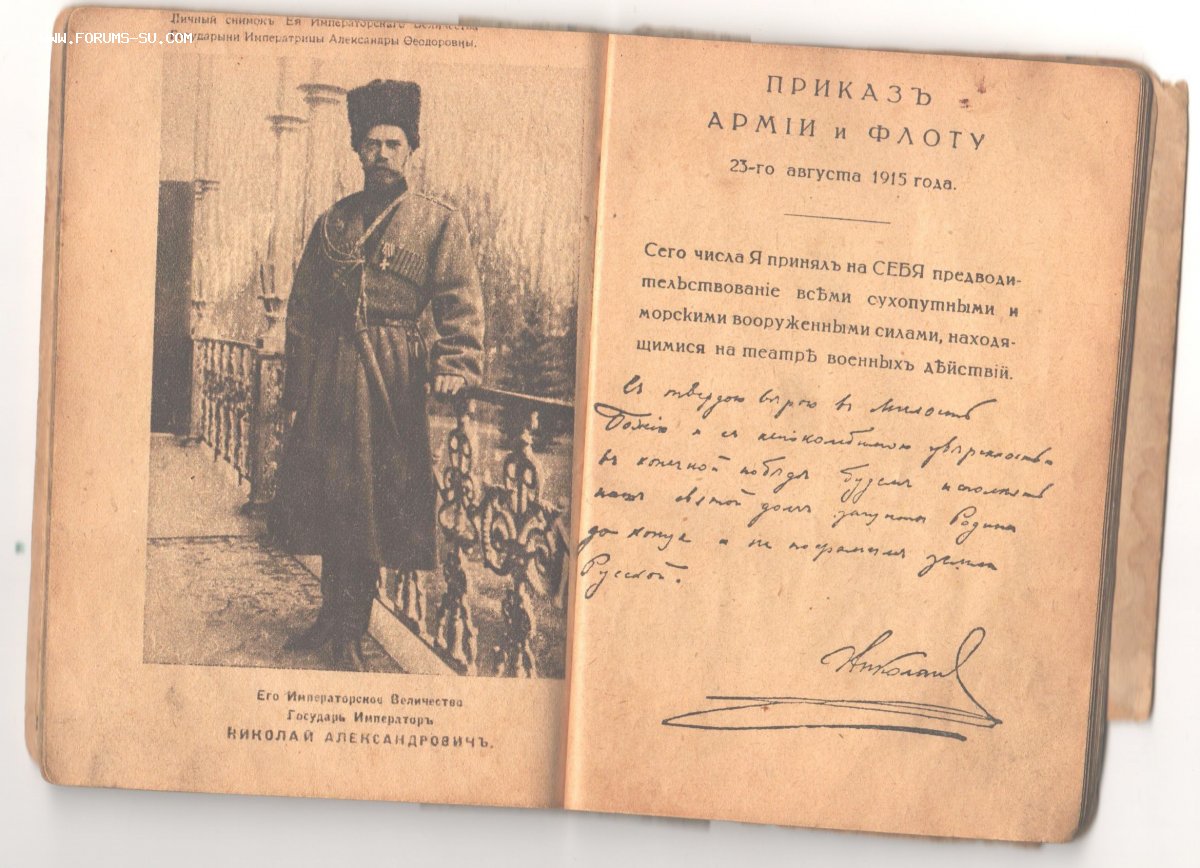 Личный снимокъ Ея Императорскаго Величества
WWW.FORUMS-SU.COM
Государыни Императрицы Александры Ѳеодоровны.
Его Императорское Величество
Государь Императоръ
НИКОЛАЙ АЛЕКСАНДРОВИЧЪ.
ПРИКАЗЪ
АРМІИ и ФЛОТУ
23-го августа 1915 года.
Сего числа Я принялъ на СЕБЯ предводи-
тельствованіе всѣми сухопутными и
морскими вооруженными силами, находя-
щимися на театрѣ военныхъ дѣйствій.
Съ твердою вѣрою въ милость
Божію и съ непоколебимою увѣренностью
въ конечной побѣдѣ будемъ исполнять
нашъ святой долгъ защиты Родины
до конца и не посрамимъ земли
Русской.
Николай